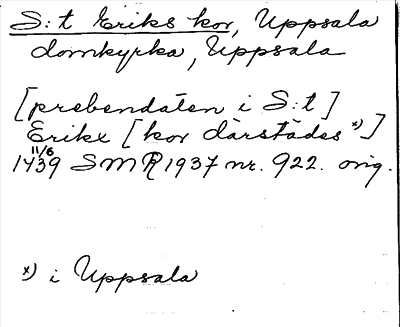 S:t Eriks kor, Uppsala
domkyrka, Uppsala
[prebendaten i S:t]
Erikx [kor därstädes x)]
11/6
1439 SMR 1937 nr. 922. orig.
x) i Uppsala